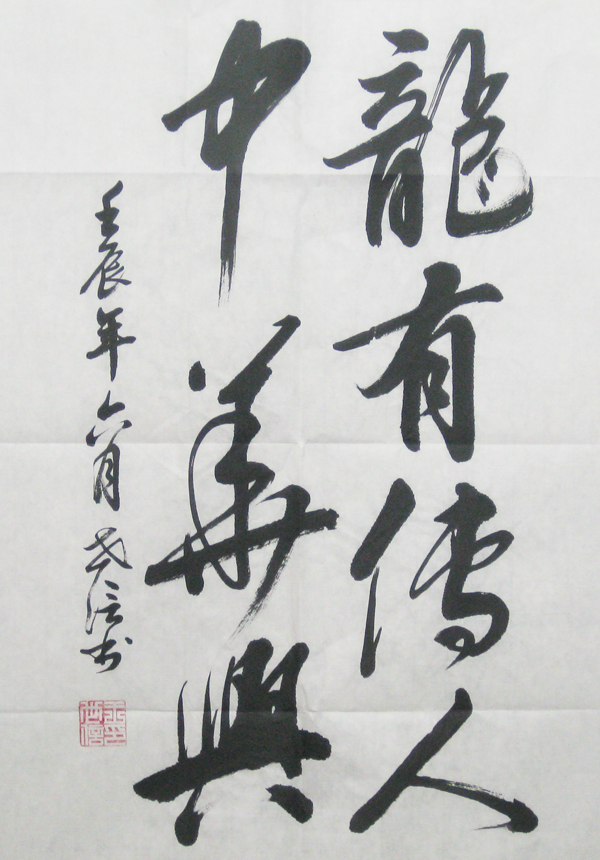 龍有傳人
中華興
壬辰年六月世信书